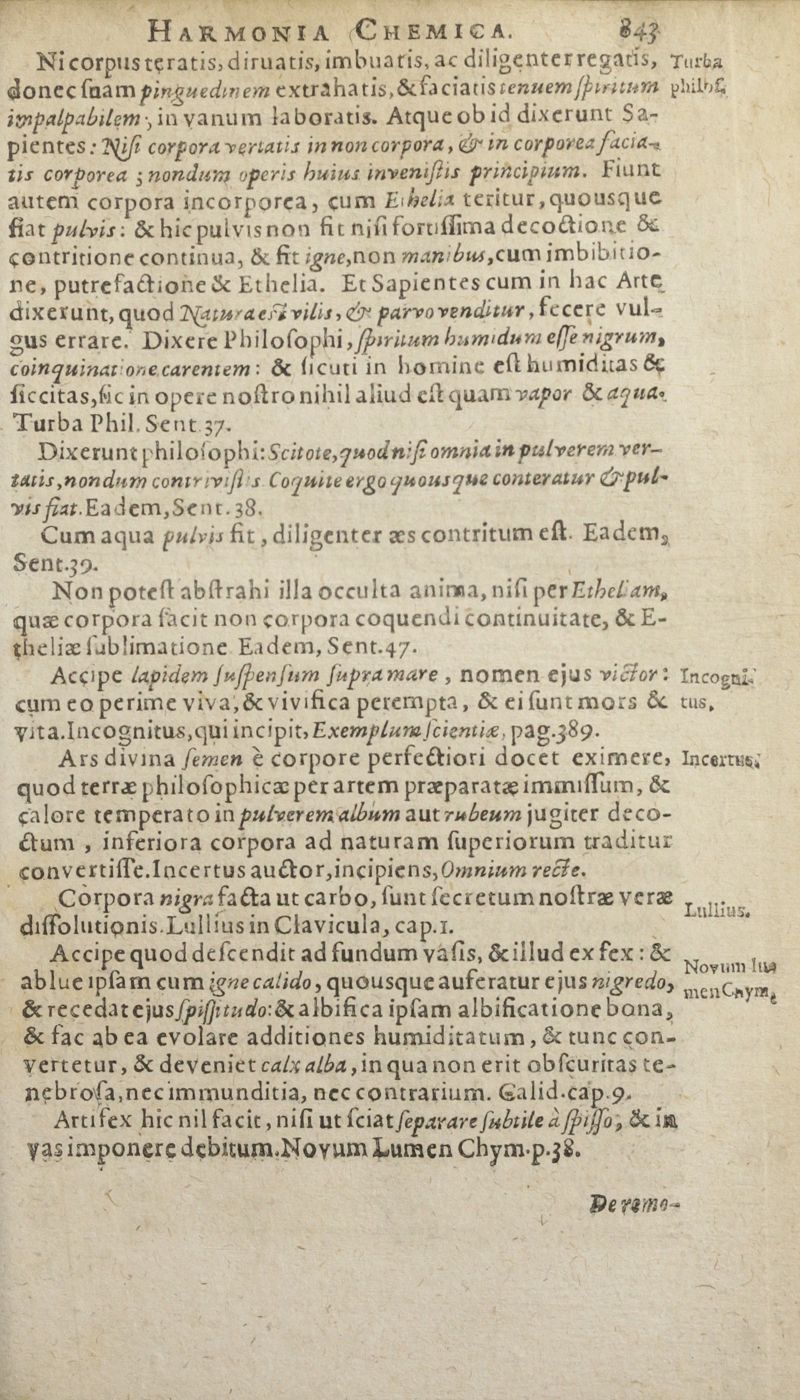 HARMONIA CHEMICA. 843
Ni corpus teratis, diruatis, imbuatis, ac diligenter regatis, Turba
donec suam pinguedinem extrahatis, & faciatis tenuem spiritum philos.
impalpabilem, in vanum laboratis. Atque ob id dixerunt Sa-
pientes: Nisi corpora vertatis in non corpora, & in corporea facia-
tis corporea; nondum operis huius invenistis principium. Fiunt
autem corpora incorporea, cum Ethelia teritur, quousque
fiat pulvis: & hic pulvis non fit nisi fortissima decoctione &
contritione continua, & fit igne, non manibus, cum imbibitio-
ne, putrefactione & Ethelia. Et Sapientes cum in hac Arte
dixerunt, quod Natura est vilis, & parvo venditur, fecere vul-
gus errare. Dixere Philosophi, spiritum humidum esse nigrum,
coinquinatione carentem: & sicuti in homine est humiditas &
siccitas, sic in opere nostro nihil aliud est quam vapor & aqua.
Turba Phil. Sent 37.
Dixerunt philosophi: Scitote, quod nisi omnia in pulverem ver-
tatis, nondum contrivistis Coquite ergo quousque conteratur & pul-
vis fiat. Eadem, Sent. 38.
Cum aqua pulvis fit, diligenter æs contritum est. Eadem,
Sent. 39.
Non potest abstrahi illa occulta anima, nisi per Etheliam,
quæ corpora facit non corpora coquendi continuitate, & E-
theliæ sublimatione Eadem, Sent. 47.
Accipe lapidem suspensum supra mare, nomen ejus victor: Incogni-
cum eo perime viva, & vivifica perempta, & ei sunt mors & tus,
vita. Incognitus, qui incipit, Exemplum scientiæ, pag. 389.
Ars divina semen è corpore perfectiori docet eximere, Incertus,
quod terræ philosophicæ per artem præparatæ immissum, &
calore temperato in pulverem album aut rubeum jugiter deco-
ctum, inferiora corpora ad naturam superiorum traditur
convertisse. Incertus auctor, incipiens, Omnium recte.
Corpora nigra facta ut carbo, sunt secretum nostræ veræ Lullius.
dissolutionis. Lullius in Clavicula, cap. 1.
Accipe quod descendit ad fundum vasis, & illud ex fex: & Novum lu-
ablue ipsam cum igne calido, quousque auferatur ejus nigredo, men Chym.
& recedat ejus spissitudo: & albifica ipsam albificatione bona,
& fac ab ea evolare additiones humiditatum, & tunc con-
vertetur, & deveniet calx alba, in qua non erit obscuritas te-
nebrosa, nec immunditia, nec contrarium. Galid. cap. 9.
Artifex hic nil facit, nisi ut sciat separare subtile à spisso, & in
vas imponere debitum. Novum Lumen Chym. p. 38.
De remo-